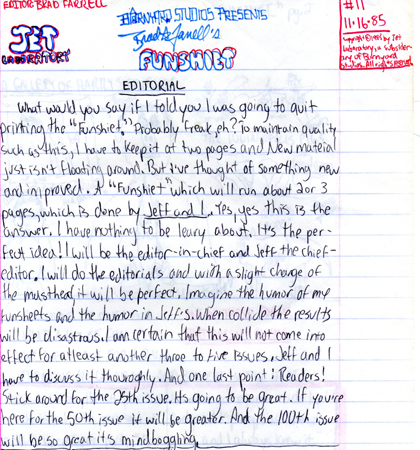 EDITOR BRAD FARRELL
BARNYARD STUDIOS PRESENTS
Brad Farrell's
FUNSHIET
JET
LABORATORY
#11
11·16·85
Copyright ©1985 by Jet
Laboratory, a subsider-
any of Barnyard
Studios. All rights reserved
EDITORIAL
What would you say if I told you I was going to quit
printing the "Funshiet." Probably freak, eh? To maintain quality
such as this, I have to keep it at two pages and New material
just isn't floating around. But I've thought of something new
and improved. A "Funshiet" which will run about 2 or 3
pages, which is done by Jeff and I. Yes, yes this is the
answer. I have nothing to be leary about. It's the per-
fect idea! I will be the editor-in-chief and Jeff the chief-
editor. I will do the editorials and with a slight change of
the masthead it will be perfect. Imagine the humor of my
funsheets and the humor in Jeff's. When collide the results
will be disastrous. I am certain that this will not come into
effect for atleast another three to five issues. Jeff and I
have to discuss it thouroghly. And one last point: Readers!
Stick around for the 25th issue. Its going to be great. If you're
here for the 50th issue it will be greater. And the 100th issue
will be so great it's mindboggling.